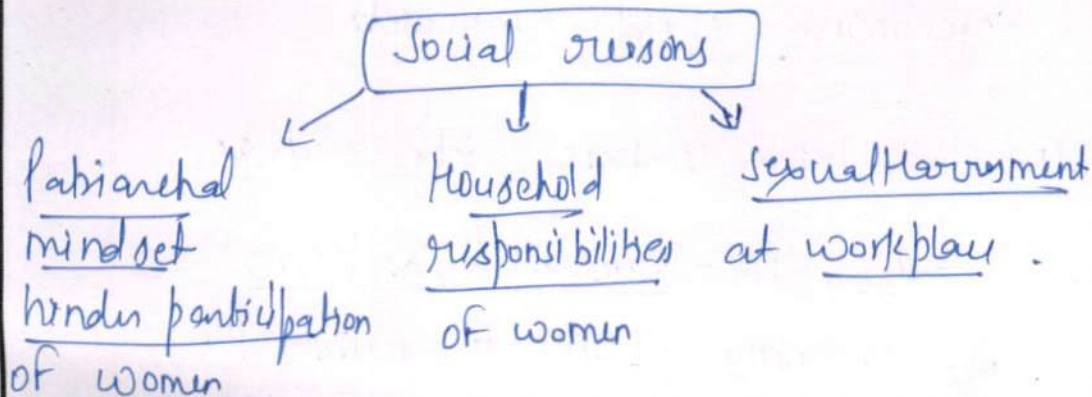 Social reasons
Patriarchal
mindset
hinder participation
of women
Household
responsibilities
of women
Sexual Harresment
at workplace.